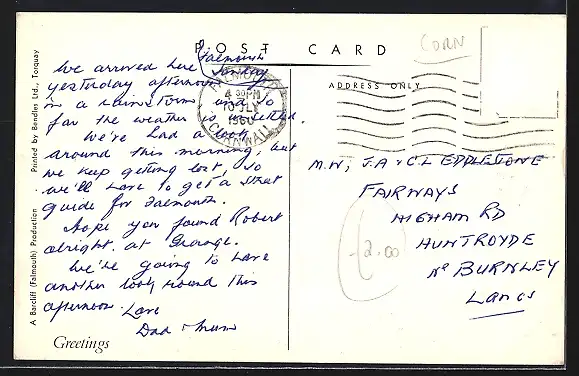 POST CARD
CORN
ADDRESS ONLY
FALMOUTH
4 30PM
10 JLY
1960
CORNWALL
Falmouth
Sunday
We arrived here
yesterday afternoon
in a rainstorm and so
far the weather is unsettled.
We've had a look
around this morning, but
we keep getting lost, so
we'll have to get a street
guide for Falmouth.
Hope you found Robert
alright. at Grange.
We're going to have
another look round this
afternoon. Love
Dad & Mum
Greetings
M.W, J.A & C.L EDDLESTONE
FAIRWAYS
HIGHAM RD
HUNTROYDE
NR BURNLEY
LANCS
2.00
A Barcliff (Falmouth) Production
Printed by Bendles Ltd., Torquay